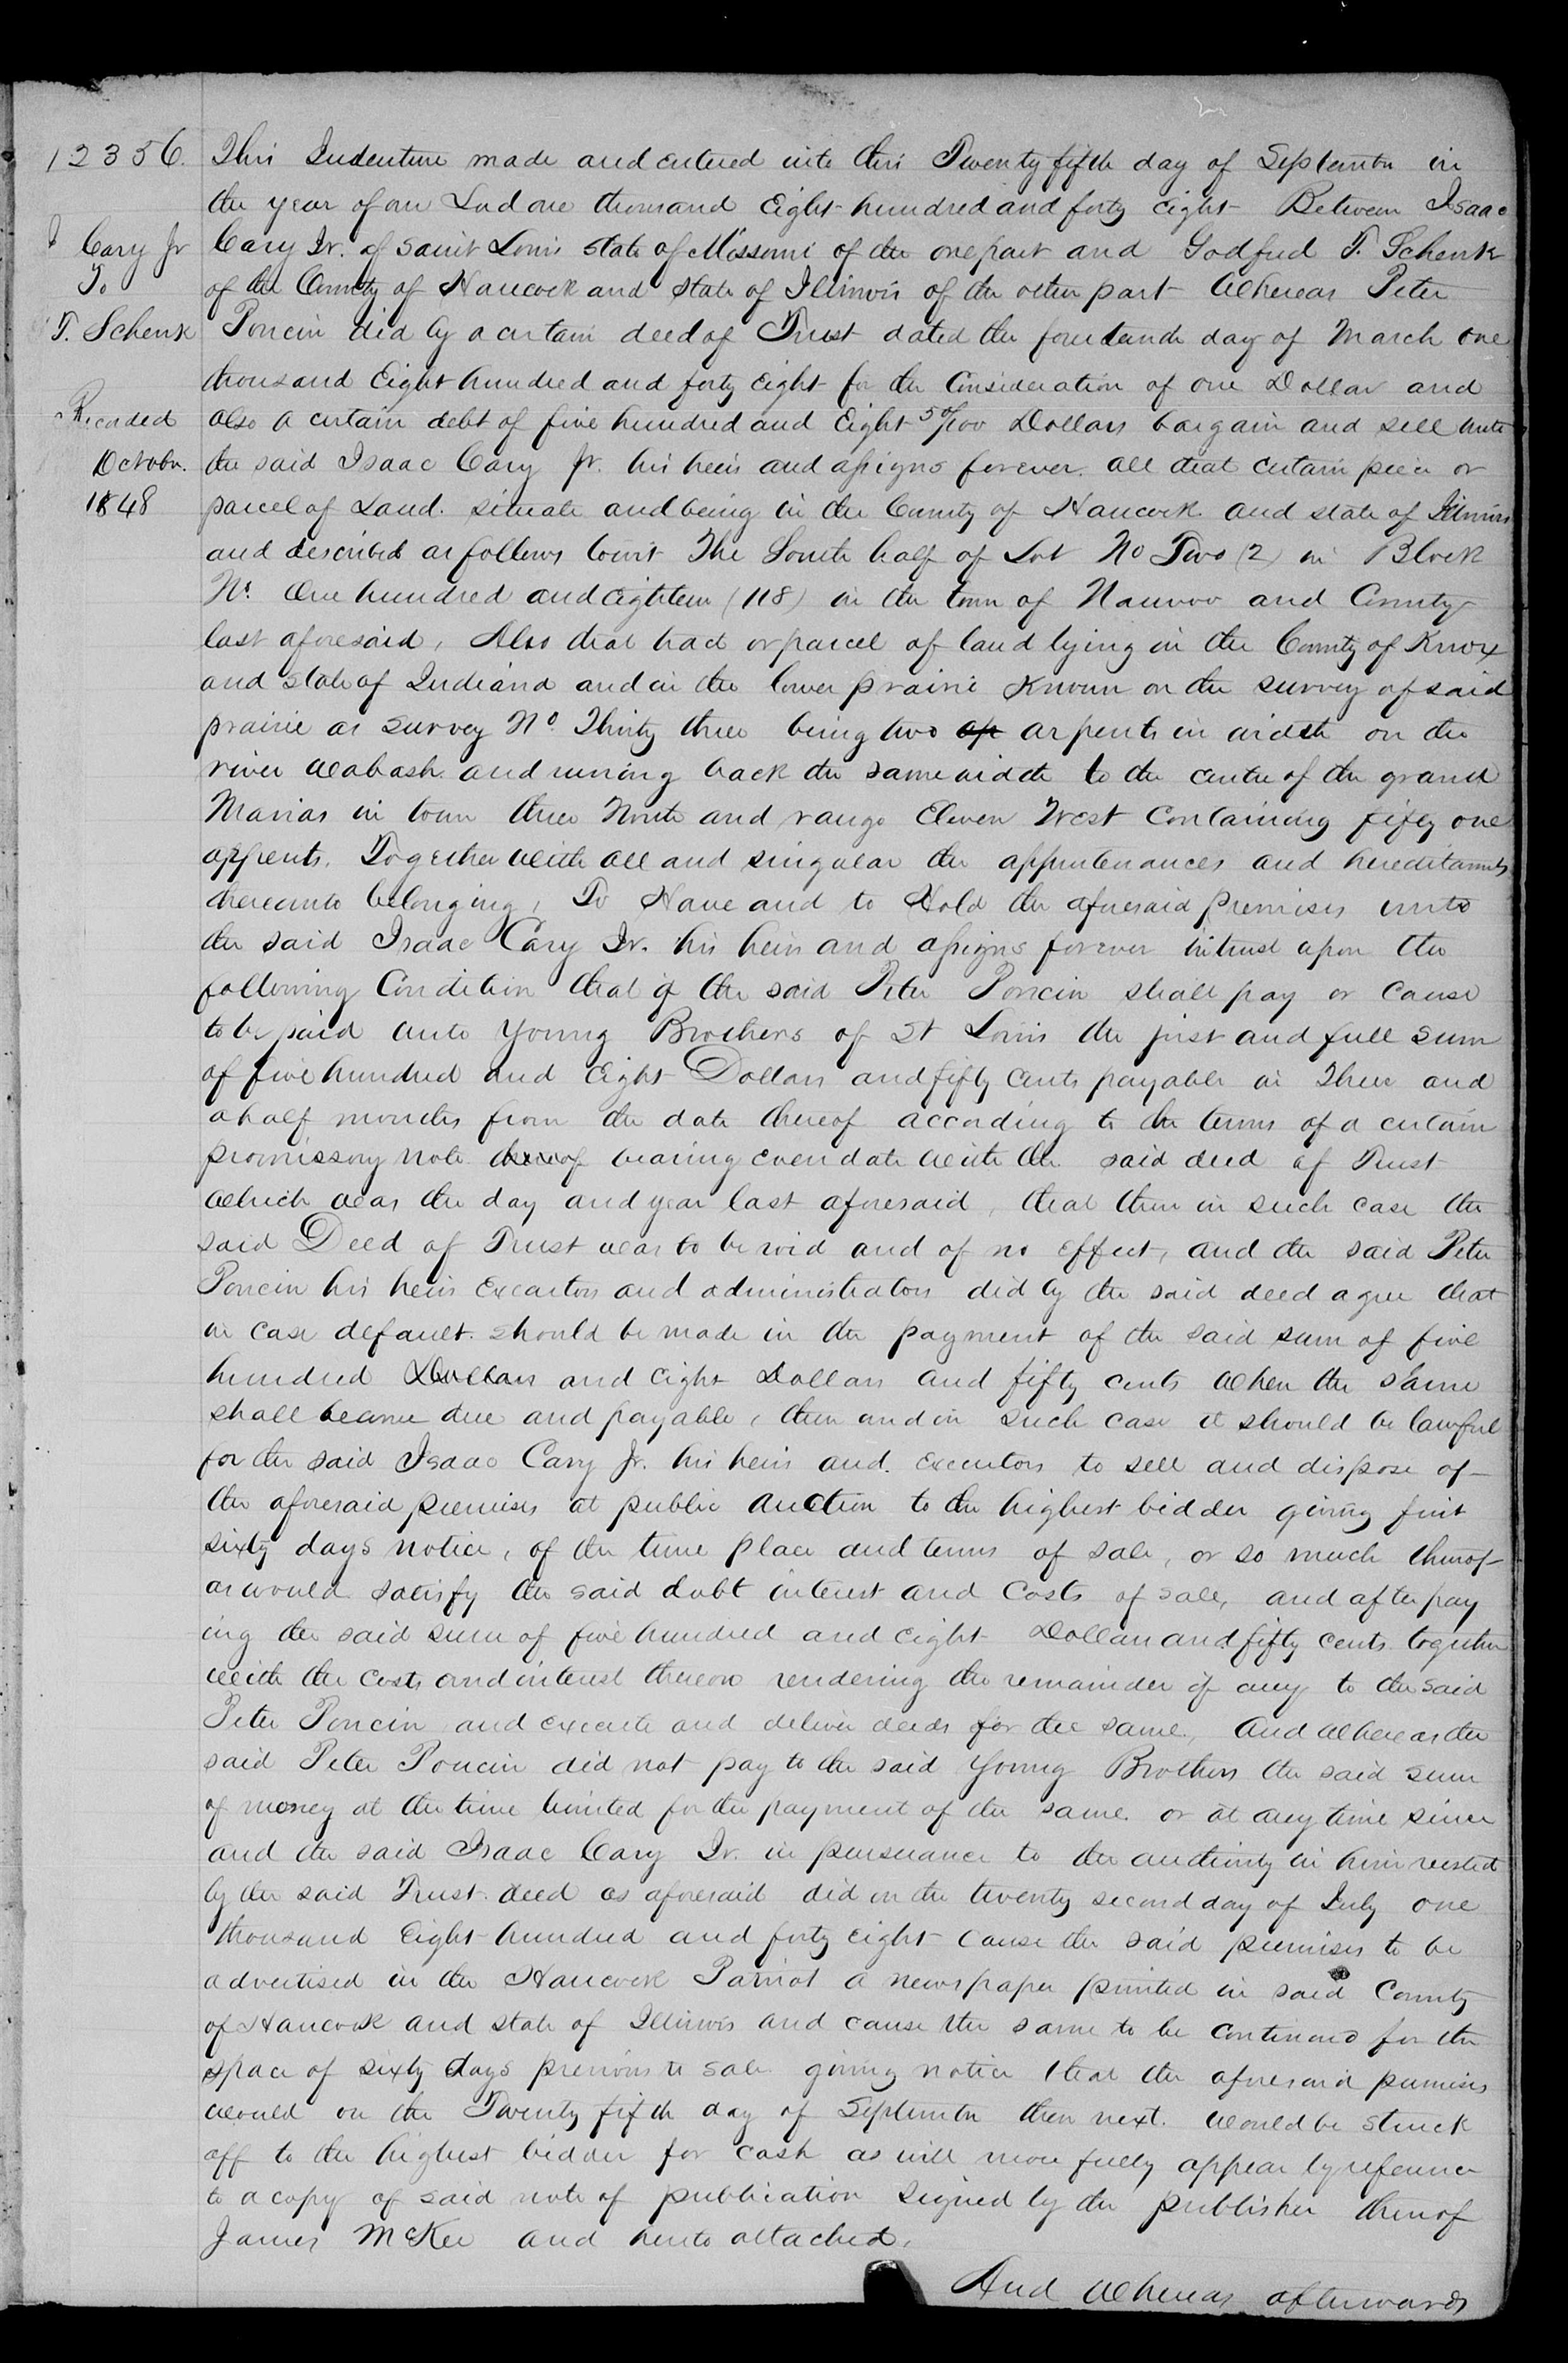 12356.
I Cary Jr
To
T. Schenk
Recorded
October.
1848
This Indenture made and entered into this Twenty fifth day of September in
the year of our Lord one thousand Eight hundred and forty eight Between Isaac
Cary Jr. of Saint Louis State of Missouri of the one part and Godfred T. Schenk
of the County of Hancock and State of Illinois of the other part Whereas Peter
Poncin did by a certain deed of Trust dated the fourteenth day of March one
thousand Eight hundred and forty eight for the Consideration of one Dollar and
also a certain debt of five hundred and Eight 50/100 Dollars bargain and sell unto
the said Isaac Cary Jr. his heirs and assigns forever. all that certain piece or
parcel of Land. situate and being in the County of Hancock and state of Illinois
and described as follows towit The South half of Lot No Two (2) in Block
No. One hundred and Eighteen (118) in the town of Nauvoo and County
last aforesaid, Also that tract or parcel of land lying in the County of Knox
and state of Indiana and in the lower prairie Known on the survey of said
prairie as survey No. Thirty three being two ap arpents in width on the
river Wabash and runing back the same width to the centre of the grand
Marias in town three North and range Eleven West Containing fifty one
arpents. Together with all and singular the appurtenances and hereditaments
thereunto belonging, To Have and to Hold the aforesaid premises unto
the said Isaac Cary Jr. his heirs and assigns forever in trust upon the
following Condition that if the said Peter Poncin shall pay or Cause
to be paid unto Young Brothers of St Louis the just and full sum
of five hundred and Eight Dollars and fifty Cents payable in Three and
a half months from the date thereof according to the terms of a certain
promissory note thereof bearing even date with the said deed of Trust
which was the day and year last aforesaid, that then in such case the
said Deed of Trust was to be void and of no Effect, and the said Peter
Poncin his heirs Executors and administrators did by the said deed agree that
in case default should be made in the payment of the said sum of five
hundred Dollars and Eight Dollars and fifty cents when the same
shall become due and payable, then and in such case it should be lawful
for the said Isaac Cary Jr. his heirs and Executors to sell and dispose of
the aforesaid premises at public auction to the highest bidder giving first
sixty days notice, of the time place and terms of sale, or so much thereof
as would satisfy the said debt interest and Costs of sale, and after pay
ing the said sum of five hundred and eight Dollars and fifty cents together
with the costs and interest thereon rendering the remainder if any to the said
Peter Poncin and execute and deliver deeds for the same, And whereas the
said Peter Poncin did not pay to the said Young Brothers the said sum
of money at the time limited for the payment of the same or at any time since
and the said Isaac Cary Jr. in pursuance to the authority in him vested
by the said Trust deed as aforesaid did on the twenty second day of July one
thousand Eight hundred and forty eight cause the said premises to be
advertised in the Hancock Patriot a newspaper printed in said County
of Hancock and state of Illinois and cause the same to be continued for the
space of sixty days previous to sale giving notice that the aforesaid premises
would on the Twenty fifth day of September then next. would be struck
off to the highest bidder for cash as will more fully appear by reference
to a copy of said note of publication signed by the publisher thereof
James McKee and hereto attached.
And Whereas afterwards